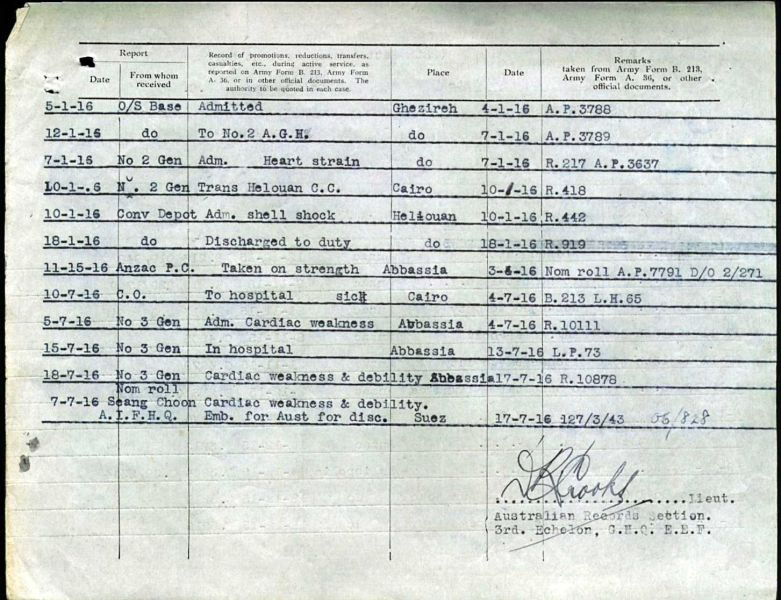 Report
Date
From whom received
Record of promotions, reductions, transfers, casualties, etc., during active service, as reported on Army Form B. 213, Army Form A. 36, or in other official documents. The authority to be quoted in each case.
Place
Date
Remarks
taken from Army Form B. 213, Army Form A. 36, or other official documents.
5-1-16 O/S Base Admitted Ghezireh 4-1-16 A.P.3788
12-1-16 do To No.2 A.G.H. do 7-1-16 A.P.3789
7-1-16 No 2 Gen Adm. Heart strain do 7-1-16 R.217 A.P.3637
10-1-.6 N. 2 Gen Trans Helouan C.C. Cairo 10-1-16 R.418
10-1-16 Conv Depot Adm. shell shock Helouan 10-1-16 R.442
18-1-16 do Discharged to duty do 18-1-16 R.919
11-15-16 Anzac P.C. Taken on strength Abbassia 3-4-16 Nom roll A.P.7791 D/O 2/271
10-7-16 C.O. To hospital sick Cairo 4-7-16 B.213 L.H.65
5-7-16 No 3 Gen Adm. Cardiac weakness Abbassia 4-7-16 R.10111
15-7-16 No 3 Gen In hospital Abbassia 13-7-16 L.P.73
18-7-16 No 3 Gen Cardiac weakness & debility Abbassia 17-7-16 R.10878
Nom roll
7-7-16 Seang Choon Cardiac weakness & debility.
A.I.F.H.Q. Emb. for Aust for disc. Suez 17-7-16 127/3/43 06/828
Crooks
Lieut.
Australian Records Section.
3rd. Echelon, G.H.Q. E.E.F.